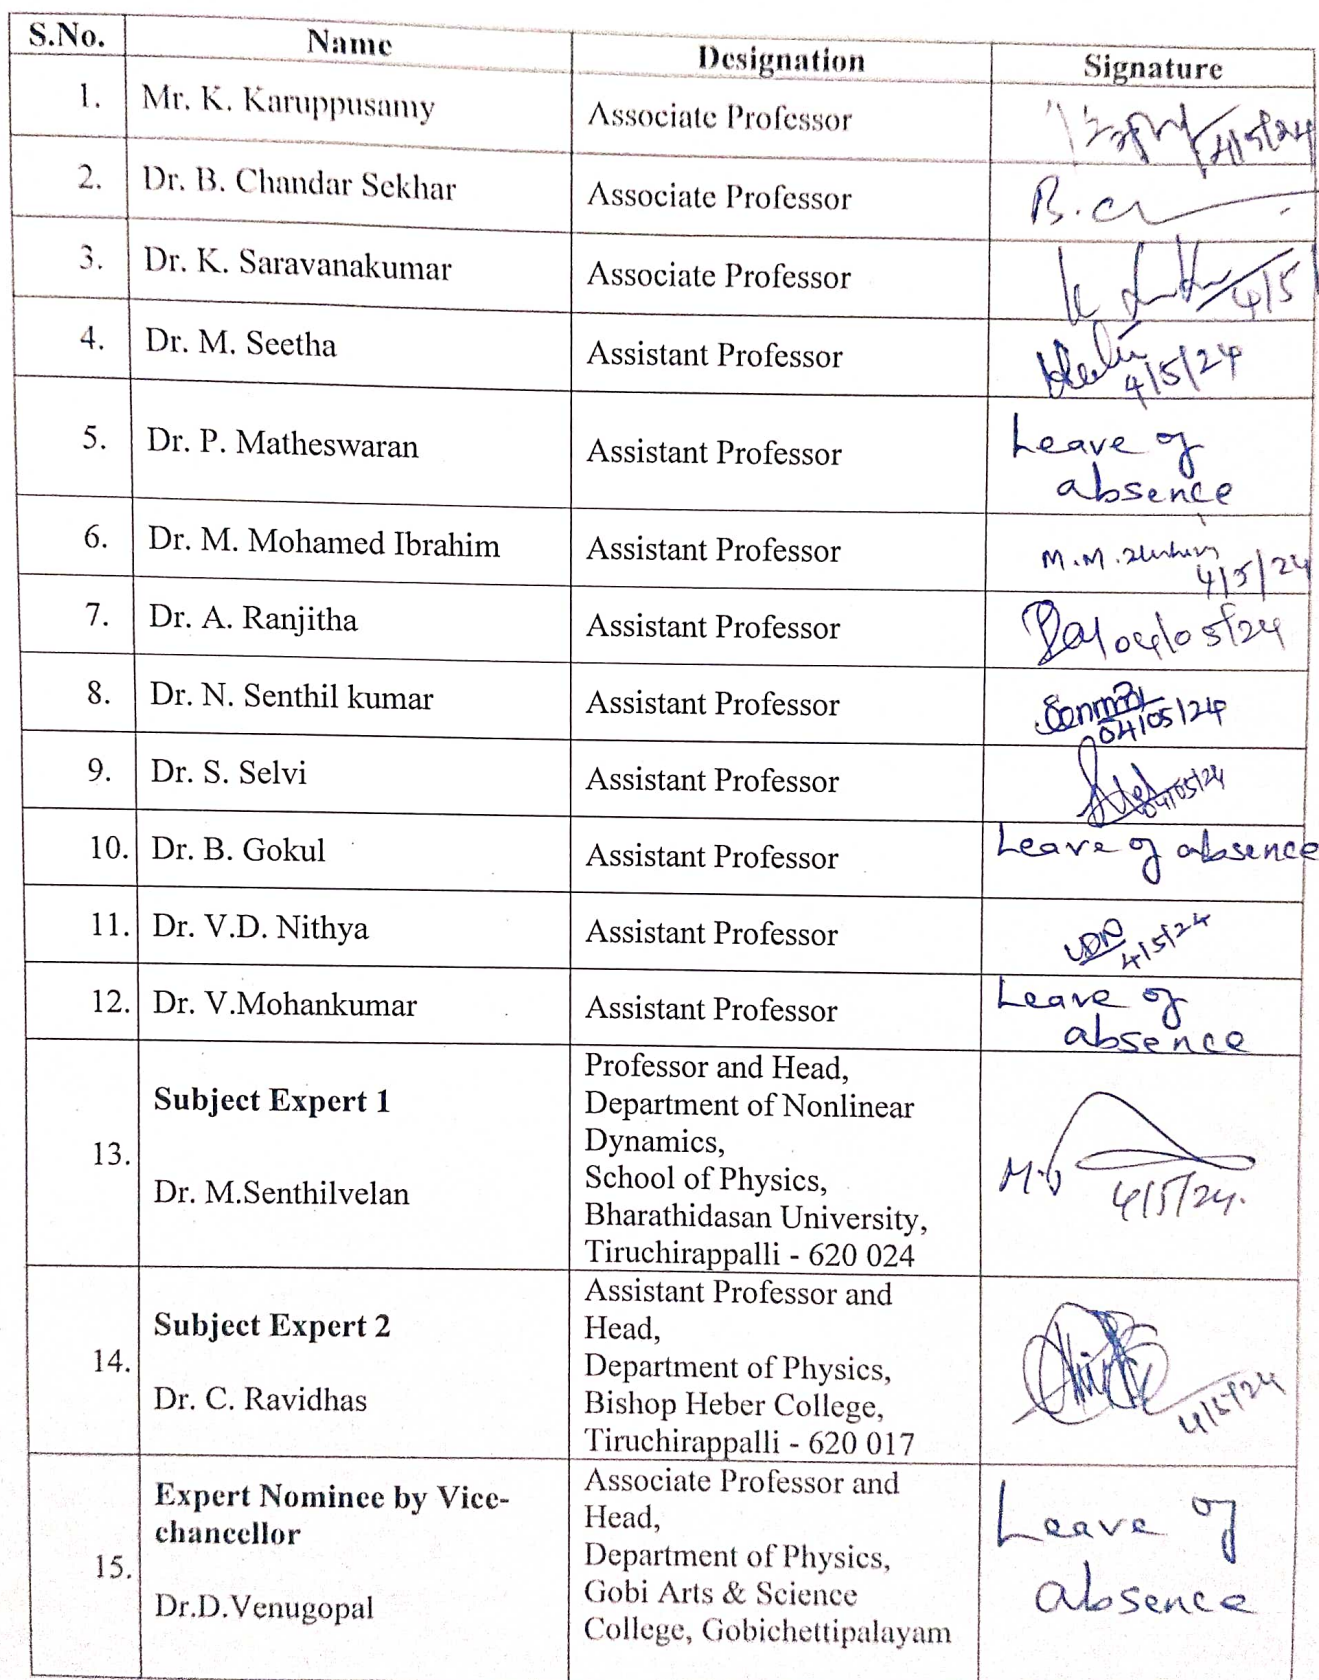 S.No. Name Designation Signature
1. Mr. K. Karuppusamy Associate Professor 4/5/24
2. Dr. B. Chandar Sekhar Associate Professor B.
3. Dr. K. Saravanakumar Associate Professor K 4/5
4. Dr. M. Seetha Assistant Professor
4/5/24
5. Dr. P. Matheswaran Assistant Professor Leave of
absence
6. Dr. M. Mohamed Ibrahim Assistant Professor M.M.
4/5/24
7. Dr. A. Ranjitha Assistant Professor 04/05/24
8. Dr. N. Senthil kumar Assistant Professor
04/05/24
9. Dr. S. Selvi Assistant Professor 04/05/24
10. Dr. B. Gokul Assistant Professor Leave of absence
11. Dr. V.D. Nithya Assistant Professor VDN
4/5/24
12. Dr. V.Mohankumar Assistant Professor Leave of
absence
13. Subject Expert 1
Dr. M.Senthilvelan
Professor and Head,
Department of Nonlinear
Dynamics,
School of Physics,
Bharathidasan University,
Tiruchirappalli - 620 024
4/5/24.
14. Subject Expert 2
Dr. C. Ravidhas
Assistant Professor and
Head,
Department of Physics,
Bishop Heber College,
Tiruchirappalli - 620 017
4/5/24
15. Expert Nominee by Vice-
chancellor
Dr.D.Venugopal
Associate Professor and
Head,
Department of Physics,
Gobi Arts & Science
College, Gobichettipalayam
Leave of
absence